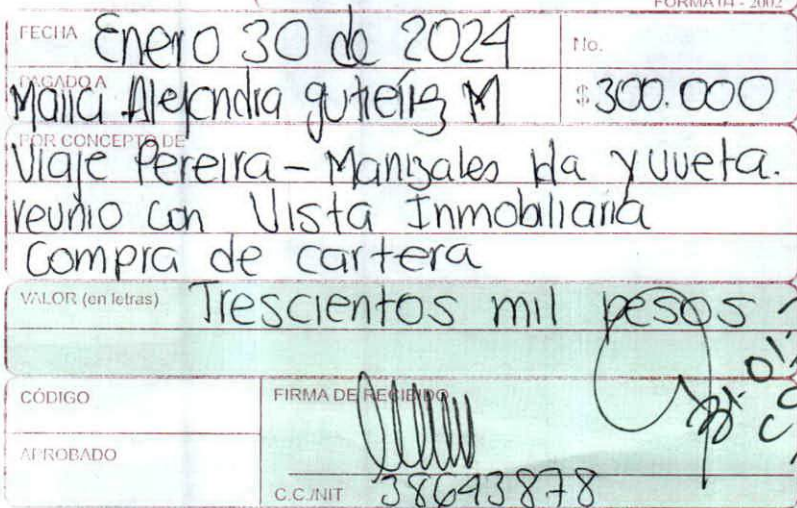 FORMA 04 - 2002
FECHA Enero 30 de 2024 No.
PAGADO A
Maria Alejandra gutierrez M $300.000
POR CONCEPTO DE
Viaje Pereira - Manizales Ida y vuelta.
reunio con Vista Inmobiliaria
Compra de cartera
VALOR (en letras) Trescientos mil pesos
CÓDIGO FIRMA DE RECIBIDO
APROBADO
C.C./NIT 38643878